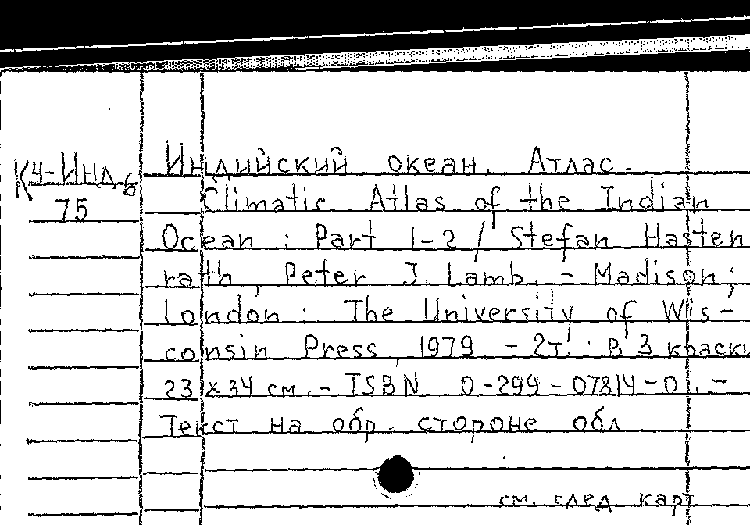 К4-Инд.6
75
Индийский океан. Атлас.
Climatic Atlas of the Indian
Ocean : Part 1-2 / Stefan Hasten
rath, Peter J. Lamb. - Madison;
London : The University of Wis-
consin Press, 1979 - 2т. : в 3 краски
23 x 34 см. - ISBN 0-299-07814-0. -
Текст на обр. стороне обл
см. след карт